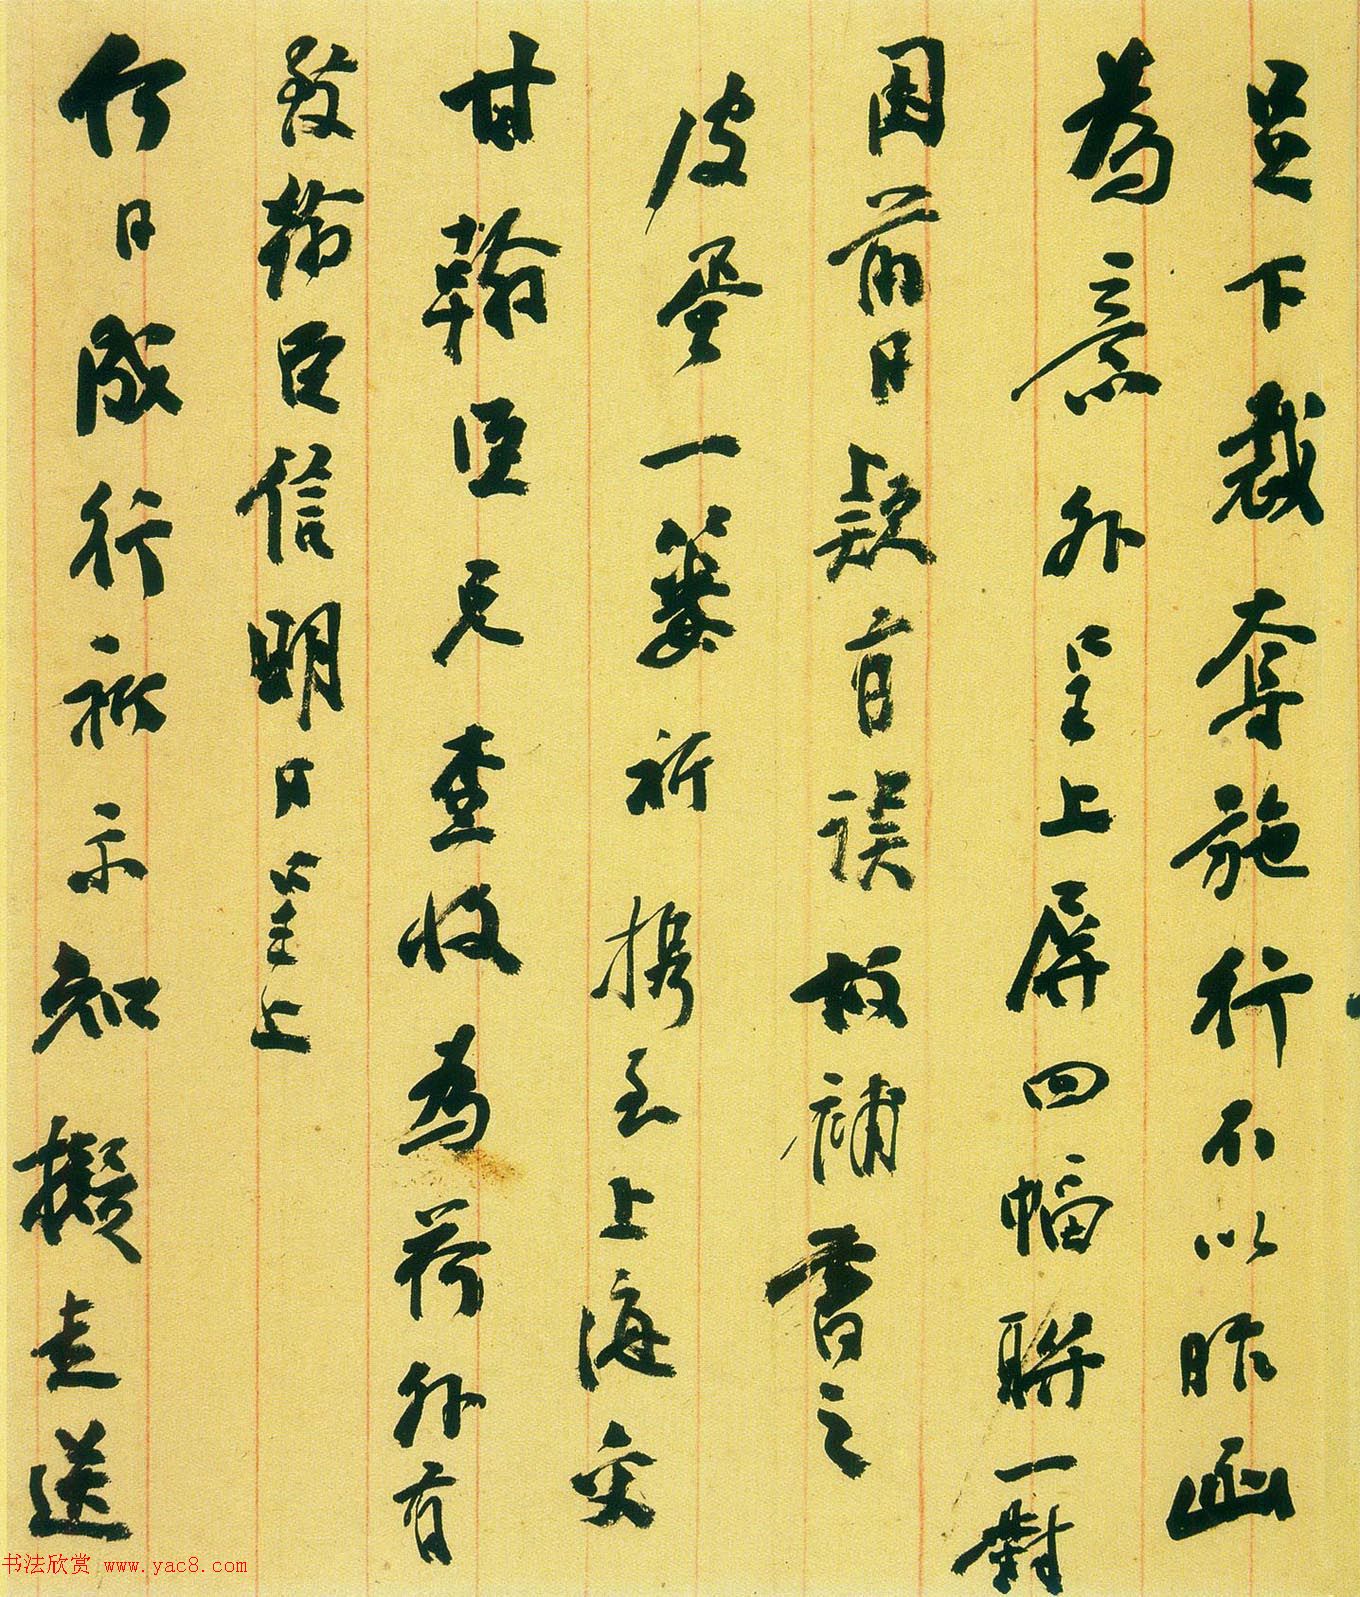 足下裁奪施行不以昨函
為意外呈上屏四幅聯一對
因前日款有誤故補書之
皮蛋一簍祈攜至上海交
甘翰臣兄查收為荷外有
致翰臣信明日呈上
何日成行祈示知擬走送
书法欣赏 www.yac8.com